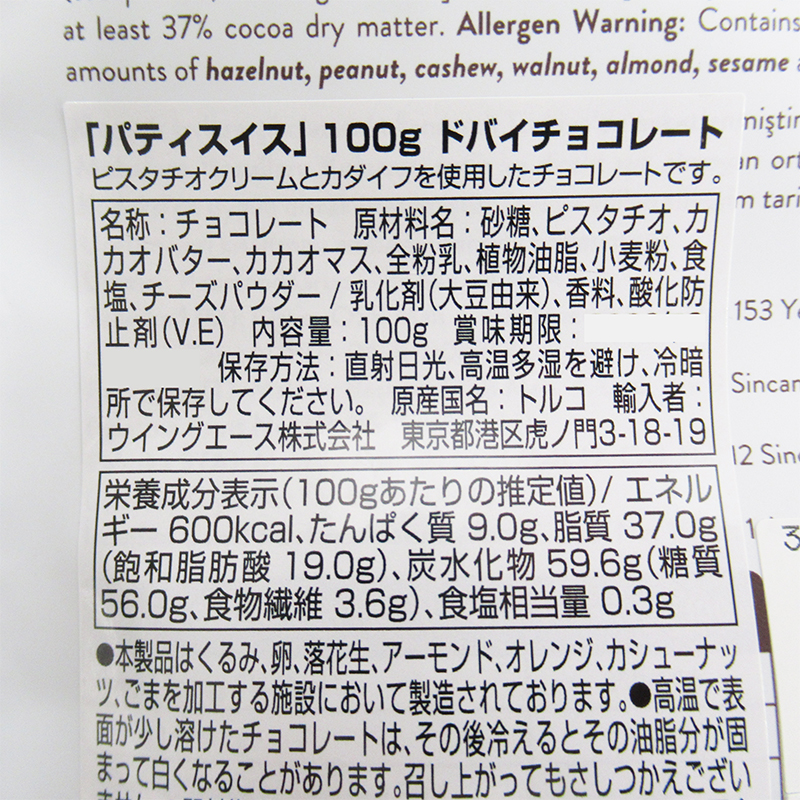 at least 37% cocoa dry matter. Allergen Warning: Contains
amounts of hazelnut, peanut, cashew, walnut, almond, sesame
「パティスイス」100g ドバイチョコレート
ピスタチオクリームとカダイフを使用したチョコレートです。
名称：チョコレート　原材料名：砂糖、ピスタチオ、カ
カオバター、カカオマス、全粉乳、植物油脂、小麦粉、食
塩、チーズパウダー / 乳化剤(大豆由来)、香料、酸化防
止剤(V.E)　内容量：100g　賞味期限：
保存方法：直射日光、高温多湿を避け、冷暗
所で保存してください。　原産国名：トルコ　輸入者：
ウイングエース株式会社　東京都港区虎ノ門3-18-19
栄養成分表示(100gあたりの推定値)/ エネル
ギー 600kcal、たんぱく質 9.0g、脂質 37.0g
(飽和脂肪酸 19.0g)、炭水化物 59.6g(糖質
56.0g、食物繊維 3.6g)、食塩相当量 0.3g
●本製品はくるみ、卵、落花生、アーモンド、オレンジ、カシューナッ
ツ、ごまを加工する施設において製造されております。●高温で表
面が少し溶けたチョコレートは、その後冷えるとその油脂分が固
まって白くなることがあります。召し上がってもさしつかえござい
153
Sincan